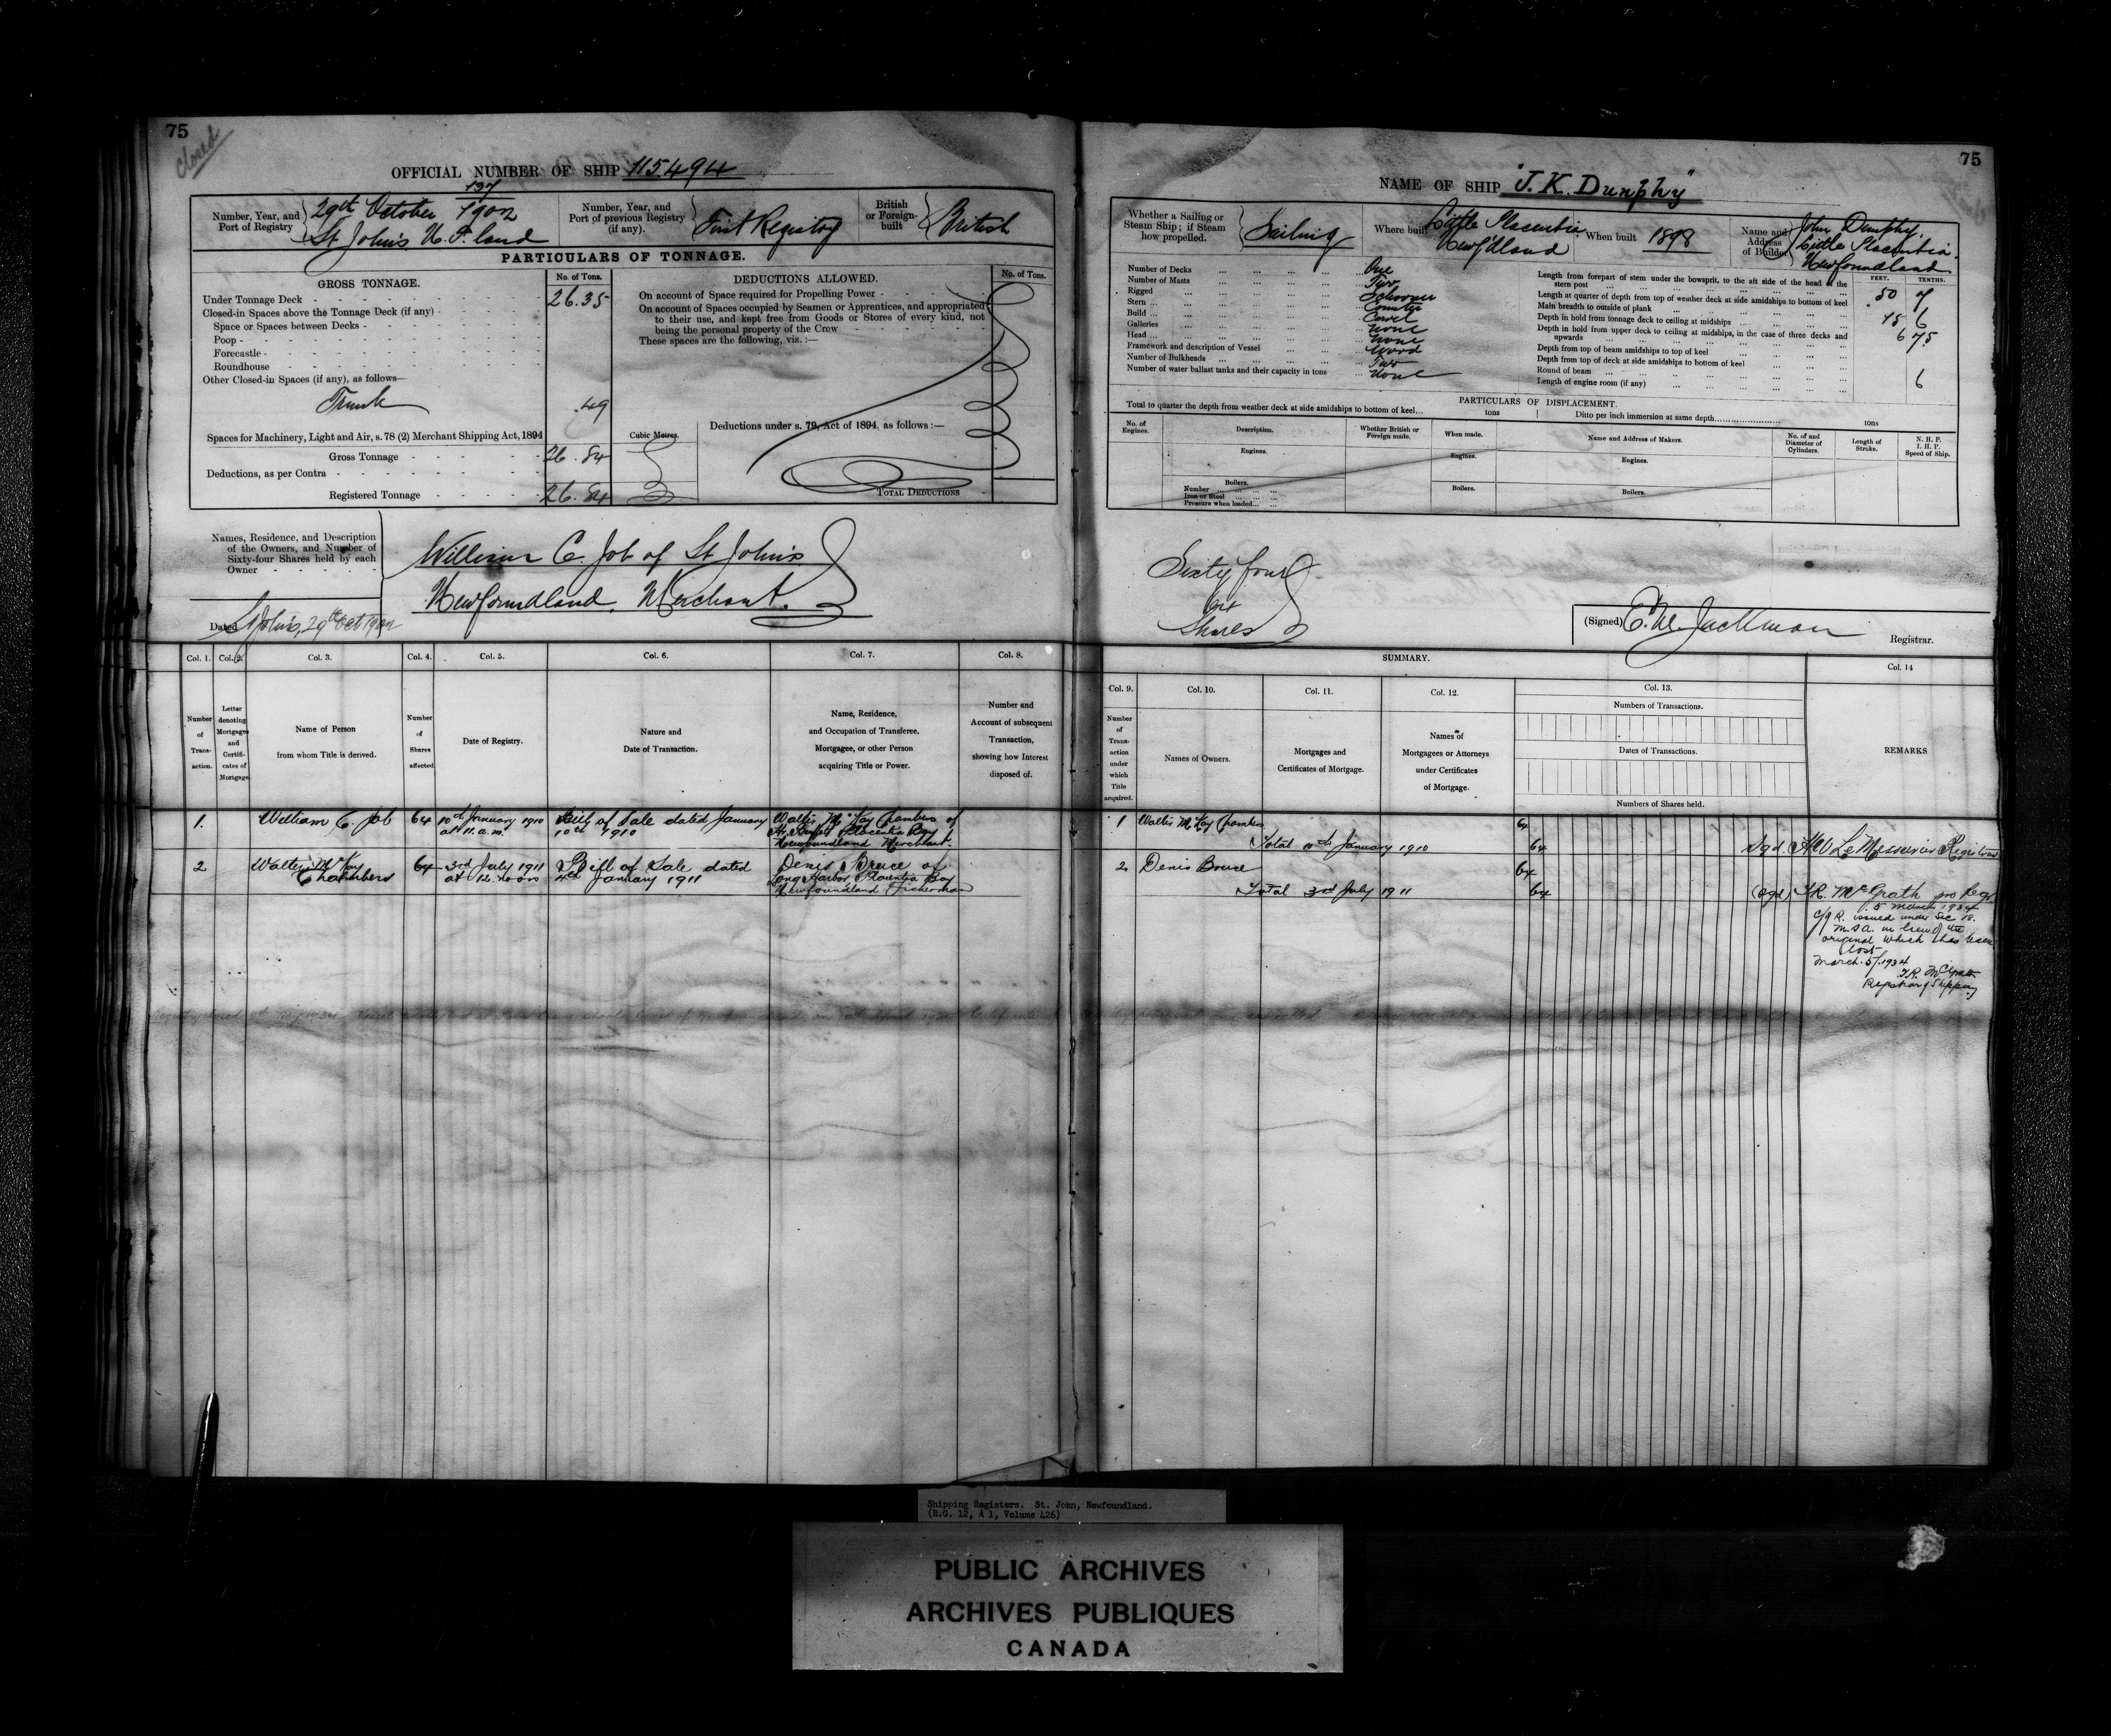 75
closed
OFFICIAL NUMBER OF SHIP 115.494
Number, Year, and Port of Registry
137
29th October 1902
St John's N. F. land
Number, Year, and Port of previous Registry (if any).
First Registry
British or Foreign-built
British
PARTICULARS OF TONNAGE.
GROSS TONNAGE.
No. of Tons.
Under Tonnage Deck 26.35
Closed-in Spaces above the Tonnage Deck (if any)
Space or Spaces between Decks
Poop
Forecastle
Roundhouse
Other Closed-in Spaces (if any), as follows—
Trunk .49
Spaces for Machinery, Light and Air, s. 78 (2) Merchant Shipping Act, 1894
Gross Tonnage 26.84
Deductions, as per Contra
Registered Tonnage 26.84
Cubic Metres.
DEDUCTIONS ALLOWED.
No. of Tons.
On account of Space required for Propelling Power
On account of Spaces occupied by Seamen or Apprentices, and appropriated
to their use, and kept free from Goods or Stores of every kind, not
being the personal property of the Crew
These spaces are the following, viz. :—
Deductions under s. 79, Act of 1894, as follows :—
TOTAL DEDUCTIONS
Names, Residence, and Description
of the Owners, and Number of
Sixty-four Shares held by each
Owner
William C. Job of St John's
Newfoundland. Merchant.
Dated St John's, 29th Oct 1902
Col. 1. Col. 2. Col. 3. Col. 4. Col. 5. Col. 6. Col. 7. Col. 8.
Number of Transaction.
Letter denoting Mortgages and Certificates of Mortgage.
Name of Person from whom Title is derived.
Number of Shares affected.
Date of Registry.
Nature and Date of Transaction.
Name, Residence, and Occupation of Transferee, Mortgagee, or other Person acquiring Title or Power.
Number and Account of subsequent Transaction, showing how Interest disposed of.
1. William C. Job 64 10th January 1910 at 11. a.m. Bill of Sale dated January 10th 1910 Walter McKay Chambers of
Placentia Bay
Newfoundland Merchant.
2 Walter McKay Chambers 64 3rd July 1911 at 12. noon Bill of Sale dated January 1911 Denis Bruce of
Long Harbor Placentia Bay
Newfoundland Fisherman
75
NAME OF SHIP "J. K. Dunphy"
Whether a Sailing or Steam Ship; if Steam how propelled.
Sailing
Where built
Little Placentia
Newf'dland
When built 1898
Name and Address of Builder
John Dunphy.
Little Placentia.
Newfoundland
Number of Decks One
Number of Masts Two
Rigged Schooner
Stern Counter
Build Carvel
Galleries None
Head None
Framework and description of Vessel Wood
Number of Bulkheads Two
Number of water ballast tanks and their capacity in tons None
FEET. TENTHS.
Length from forepart of stem under the bowsprit, to the aft side of the head of the
stern post 50 7
Length at quarter of depth from top of weather deck at side amidships to bottom of keel
Main breadth to outside of plank 15 6
Depth in hold from tonnage deck to ceiling at midships 6 75
Depth in hold from upper deck to ceiling at midships, in the case of three decks and
upwards
Depth from top of beam amidships to top of keel
Depth from top of deck at side amidships to bottom of keel
Round of beam 6
Length of engine room (if any)
PARTICULARS OF DISPLACEMENT.
Total to quarter the depth from weather deck at side amidships to bottom of keel... tons Ditto per inch immersion at same depth tons
No. of Engines.
Description.
Whether British or Foreign made.
When made.
Name and Address of Makers.
No. of and Diameter of Cylinders.
Length of Stroke.
N. H. P. I. H. P. Speed of Ship.
Engines. Engines. Engines.
Boilers. Boilers. Boilers.
Number
Iron or Steel
Pressure when loaded
Sixty four
64
Shares
(Signed) E. M. Jackman
Registrar.
SUMMARY.
Col. 9. Col. 10. Col. 11. Col. 12. Col. 13. Col. 14
Number of Transaction under which Title acquired.
Names of Owners.
Mortgages and Certificates of Mortgage.
Names of Mortgagees or Attorneys under Certificates of Mortgage.
Numbers of Transactions.
Dates of Transactions.
Numbers of Shares held.
REMARKS
1 Walter McKay Chambers 64
Total 10th January 1910 64 Sgd. H W LeMessurier Registrar
2 Denis Bruce 64
Total 3rd July 1911 64 (Sgd) T.R. McGrath pro Regr
5 March 1934
C/of R. issued under Sec 18.
M.S.A. in lieu of the
original which has been
lost
March. 5/1934
T.R. McGrath
Registrar of Shipping
Shipping Registers. St. John, Newfoundland.
(R.G. 12, A 1, Volume 426)
PUBLIC ARCHIVES
ARCHIVES PUBLIQUES
CANADA